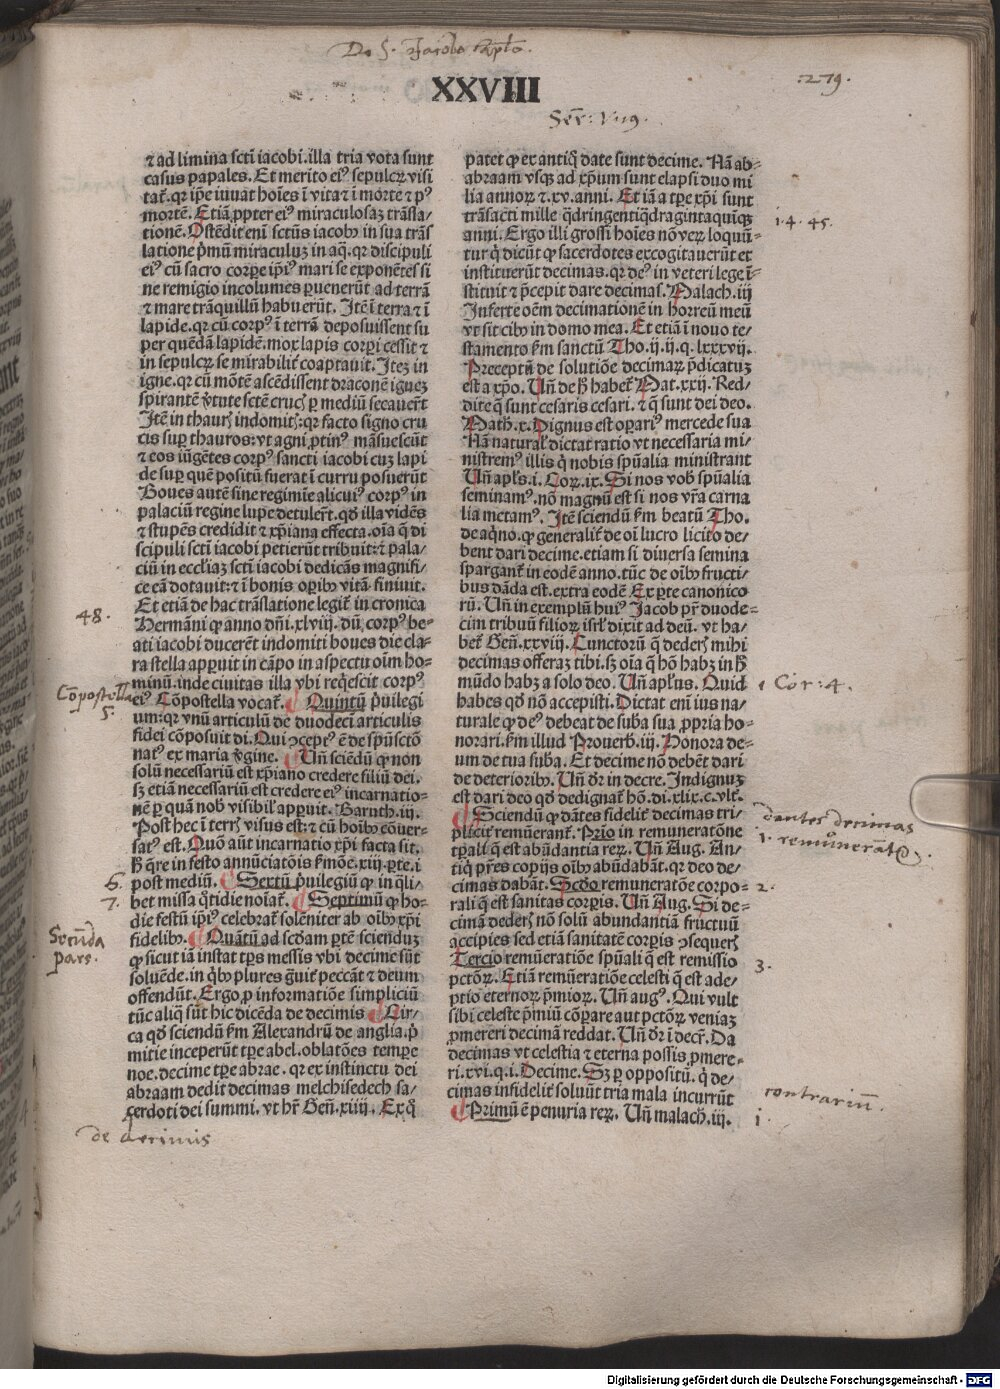 De S. Jacobo Aplo.
.279.
XXVIII
Ser:
⁊ ad limina scti iacobi. illa tria vota sunt
casus papales. Et merito eiꝰ sepulcrꝝ visi
tat̃. qr ip̃e iuuat hoı̃es ı̃ vita ⁊ ı̃ morte ⁊ pꝰ
mortẽ. Etiã ꝓpter eiꝰ miraculosaʒ trãsla⸗
tionẽ. Ostẽdit enı̃ sctũs iacobꝰ in sua trãs
latione pⁱmũ miraculuʒ in aq̃. qr discipuli
eiꝰ cũ sacro corpe ip̃iꝰ mari se exponẽtes si
ne remigio incolumes puenerũt ad terrã
⁊ mare trãquillũ habuerũt. Itẽ ı̃ terra ⁊ ı̃
lapide. qr cũ corpꝰ ı̃ terrã deposuissent su
per quẽdã lapidẽ. mox lapis corpi cessit ⁊
in sepulcrꝝ se mirabilit̃ coaptauit. Iteʒ in
igne. qr cũ mõtẽ ascẽdissent draconẽ igneʒ
spirantẽ ṽtute sctẽ crucʒ p mediũ secauer̃t
Itẽ in thaurʒ indomitʒ: qr facto signo cru
cis sup thauros: vt agni ꝓtinꝰ mãsuescũt
⁊ eos iũgẽtes corpꝰ sancti iacobi cuʒ lapi
de sup quẽ positũ fuerat ı̃ curru posuerũt
Boues autẽ sine regimı̃e alicuiꝰ corpꝰ in
palaciũ regine lupe detuler̃t. qd̃ illa vidẽs
⁊ stupẽs credidit ⁊ xp̃iana effecta. oı̃a q̃ di
scipuli scti iacobi petierũt tribuit: ⁊ pala⸗
ciũ in eccl̃iaʒ scti iacobi dedicãs magnifi⸗
ce eã dotauit: ⁊ ı̃ bonis opibꝰ vitã finiuit.
Et etiã de hac trãslatione legit̃ in cronica
Hermãni ꝙ anno dñi. xlviij. dũ corpꝰ be⸗
ati iacobi ducerẽt indomiti boues die cla⸗
ra stella apparuit in cãpo in aspectu oı̃m ho⸗
minũ. inde ciuitas illa vbi reqⁱescit corpꝰ
eiꝰ Cõpostella vocat̃. ¶ Quintũ pⁱuilegi
um: qr vnũ articulũ de duodecı̃ articulis
fidei cõposuit di. Qui ↄceptꝰ ẽ de spũsctõ
natꝰ ex maria ṽgine. ¶ Uñ sciendũ ꝙ non
solũ necessariũ est xp̃iano credere filiũ dei.
sʒ etiã necessariũ est credere eiꝰ incarnatio⸗
nẽ p quã nobꝭ visibil̃ apparuit. Baruth. iij.
Post hec ı̃ terrʒ visus est: ⁊ cũ hoı̃bꝰ cõuer⸗
satꝰ est. Quõ aũt incarnatio xp̃i facta sit.
ħ q̃re in festo annũciatõis sermõe. xiij. pte. i
post mediũ. ¶ Sextũ pⁱuilegiũ ꝙ in qⁱli⸗
bet missa q̃tidie noı̃at̃. ¶ Septimũ ꝙ ho⸗
die festũ ip̃iꝰ celebrat̃ solẽniter ab oı̃bꝰ xp̃i
fidelibꝰ. ¶ Quãtũ ad scdam ptẽ sciendum
ꝙ sicut iã instat tp̃s messis vbi decime sũt
soluẽde. in qⁱbꝰ plures g̃uit̃ peccãt ⁊ deum
offendũt. Ergo ꝓ informatiõe simpliciũ
tũc aliq̃ sũt hic dicẽda de decimis ¶ Cir⸗
ca qd̃ sciendũ sm̃ Alexandrũ de anglia. pⁱ
mitie inceperũt tpe abel. oblatões tempe
noe. decime tpe abrae. qr ex instinctu dei
abraam dedit decimas melchisedech sa⸗
cerdoti dei summi. vt hr̃ Geñ. xiiij. Ex q̊
patet ꝙ ex antiq̊ date sunt decime. Nã ab⸗
abraam vsqʒ ad xp̃um sunt elapsi duo mi
lia annoꝝ ⁊. xv. anni. Et iã a tpe xp̃i sunt
trãsacti mille q̃dringentiq̃dragintaquiqʒ
anni. Ergo illi grossi hoı̃es nõ verꝝ loquũ⸗
tur qⁱ dicũt ꝙ sacerdotes excogitauerũt et
instituerũt decimas. qr deꝰ in veteri lege ı̃⸗
stituit ⁊ p̃cepit dare decimas. Malach. iij
Inferte oẽm decimationẽ in horreũ meũ
vt sit cibꝰ in domo mea. Et etiã ı̃ nouo te⸗
stamento sm̃ sanctũ Tho. ij. ij. q. lxxxvij.
Preceptũ de solutiõe decimaꝝ p̃dicatuʒ
est a xp̃o. Uñ de ħ habet̃ Mat. xxij. Red⸗
dite q̃ sunt cesaris cesari. ⁊ q̃ sunt dei deo.
Math. x. Dignus est opari mercede sua
Nã natural̃ dictat ratio vt necessaria mi⸗
nistremꝰ illis qⁱ nobis spũalia ministrant
Uñ apl̃s. i. Coꝝ. ix. Si nos vobꝭ spũalia
seminamꝰ. nõ magnũ est si nos vr̃a carna
lia metamꝰ. Itẽ sciendũ sm̃ beatũ Tho.
de aqⁱno. ꝙ generalit̃ de oı̃ lucro licito de⸗
bent dari decime. etiam si diuersa semina
spargant̃ in eodẽ anno. tũc de oı̃bꝰ fructi⸗
bus dãda est. extra eodẽ Ex pte canonico
rũ. Uñ in exemplũ huiꝰ Jacob pr̃ duode⸗
cim tribuũ filioꝝ isrl̃ dixit ad deũ. vt ha⸗
bet̃ Geñ. xxviij. Cunctorũ q̃ dederʒ mihi
decimas offeraʒ tibi. sʒ oı̃a q̃ hõ habʒ in ħ
mũdo habʒ a solo deo. Uñ apl̃us. Quid
habes qd̃ nõ accepisti. Dictat enı̃ ius na⸗
turale ꝙ deꝰ debeat de sub̃a sua ꝓpria ho⸗
norari. sm̃ illud Prouerb̃. iij. Honora de⸗
um de tua sub̃a. Et decime nõ debẽt dari
de deterioribꝰ. Uñ dr̃ in decre. Indignuʒ
est dari deo qd̃ dedignat̃ hõ. di. xlix. c. vlt̃.
¶ Sciendũ ꝙ dãtes fidelit̃ decimas tri⸗
plicit̃ remũerant̃. Prio in remuneratõne
tp̃ali q̃ est abũdantia reꝝ. Uñ Aug. An⸗
tiqⁱ pr̃es copijs oı̃bꝰ abũdabãt. qr deo de⸗
cimas dabãt. Scdo remuneratõe corpo⸗
rali q̃ est sanitas corpis. Uñ Aug. Si de⸗
cimã dederʒ nõ solũ abundantiã fructuũ
accipies sed etiã sanitatẽ corpis ↄsequerʒ
Tercio remũeratiõe spũali q̃ est remissio
pctõꝝ. Etiã remũeratiõe celesti q̃ est ade⸗
ptio eternoꝝ pⁱmioꝝ. Uñ augꝰ. Qui vult
sibi celeste p̃miũ cõpare aut pctõꝝ veniaʒ
ꝓmereri decimã reddat. Uñ dr̃ ı̃ decr̃. Da
decimas vt celestia ⁊ eterna possis ꝓmere⸗
ri. xvi. q. i. Decime. Sʒ p oppositũ. qⁱ de⸗
cimas infidelit̃ soluũt tria mala incurrũt
¶ Primũ ẽ penuria reꝝ. Uñ malach. iij.
48.
Cõpostella
5.
6.
7.
Secũda
pars.
de decimis
1.4.45.
1 Cor: 4.
dantes decimas
1.
2.
3.
contrariũ.
1
Digitalisierung gefördert durch die Deutsche Forschungsgemeinschaft - DFG